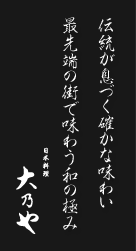 伝統が息づく確かな味わい
最先端の街で味わう和の極み
日本料理
大乃や